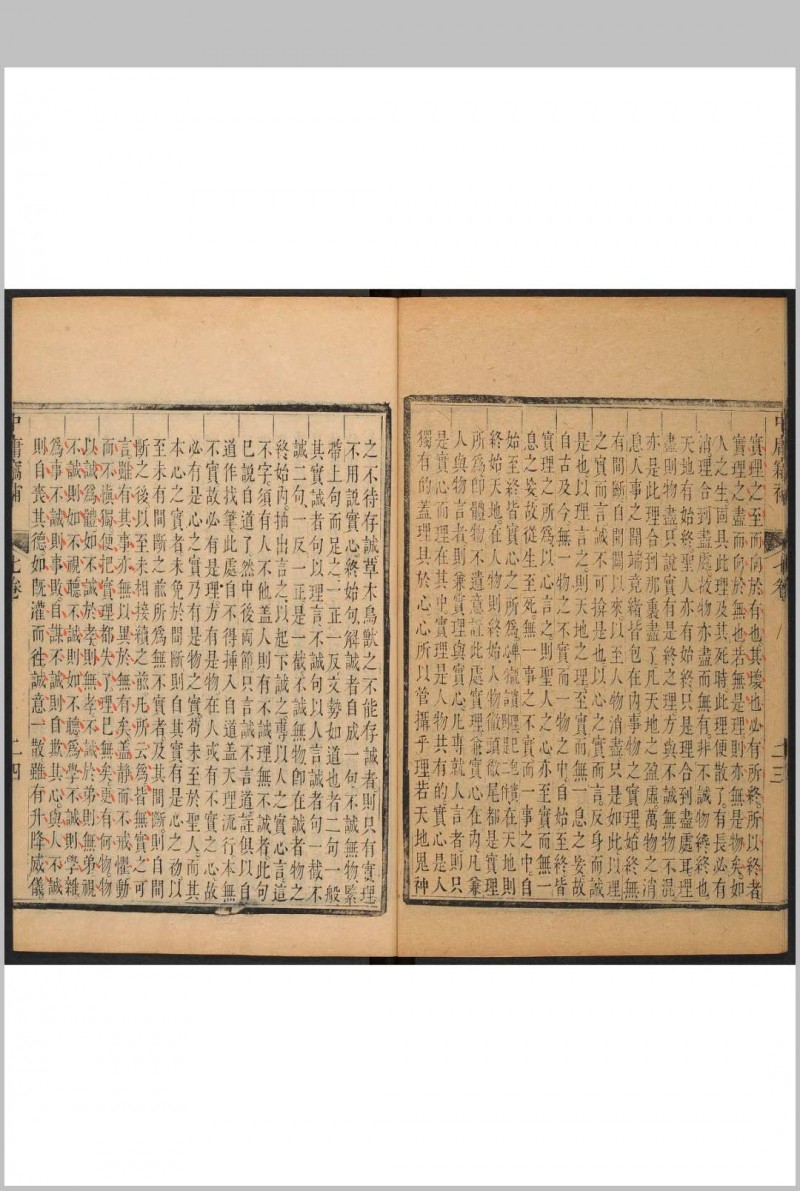 中庸竊補
卷
二三
實理之至而向於有也其壞也必有所終所以終者
實理之盡而向於無也若無是理則亦無是物矣如
人之生固具此理及其死時此理便散了有長必有
消理合到盡處故物亦盡而無有非不誠物終終也
天地有始終聖人亦有始終只是理合到盡處耳理
盡則物盡只說實有是終之理方與不誠無物不混
亦是此理合到那裏盡了凡天地之盈虛萬物之消
息人事之闔端竟緒皆包在內事物之實理始終無
間斷自開闢以來以至人物消盡只是如此以理
之實而言誠則不可揜是也以心之實而言反身而誠
是也以理言之則天地之理至實而無一息之妄故
自古及今無一物之不實而一物之中自始至終皆
實理之所爲也以心言之則聖人之心亦至實而無一
息之妄故從生至死無一事之不實而一事之中自
始至終皆實心之所爲在天地則
終始天地在人物則終始人物徹頭徹尾都是實理
所爲卽體物不遺意註此處實理兼實心在內凡兼
人與物言者則兼實理與實心凡專就人言者則只
是實心而理在其中實理是人物共有的實心是人
獨有的蓋理具於心心所以管攝乎理若天地鬼神
之不待存誠草木鳥獸之不能存誠者則只有實理
不用說實心終始句解誠者自成一句不誠無物緊
帶上句而足之一正一反文勢如道也者二句一般
其實誠者句以理言不誠句以人言誠者句一截不
誠二句一反一正是一截不誠無物卽在誠者物之
終始內抽出言之以起下誠之專以人之實心言這
不字須有人不他蓋人則有不誠理無不誠者此句
已說自道了然中後兩節只言誠不言道註俱以自
道作找筆此處自不得揷入自道蓋天理流行本無
不實故必有是理方有是物在人或有不實之心故
必有是心之實乃有是物之實苟未至於聖人而其
本心之實者未免於間斷則自其實有是心之初以
至未有間斷之前所爲無不實者及其間斷則自間
斷之後以至未相接續之前凡所云爲皆無實之可
言雖有其事亦無以異於無有矣蓋靜而不戒懼動
而不愼獨便把實理都失了理已無矣更有何物物
以誠爲體如不誠於孝則無孝不誠於弟則無弟視
不誠則如不視聽不誠則如不聽爲學不誠則學雜
爲事不誠則事敗自謀不誠則自欺其心與人不誠
則自喪其德如旣灌而往誠意一散雖有升降威儀
中庸竊補
卷
二四